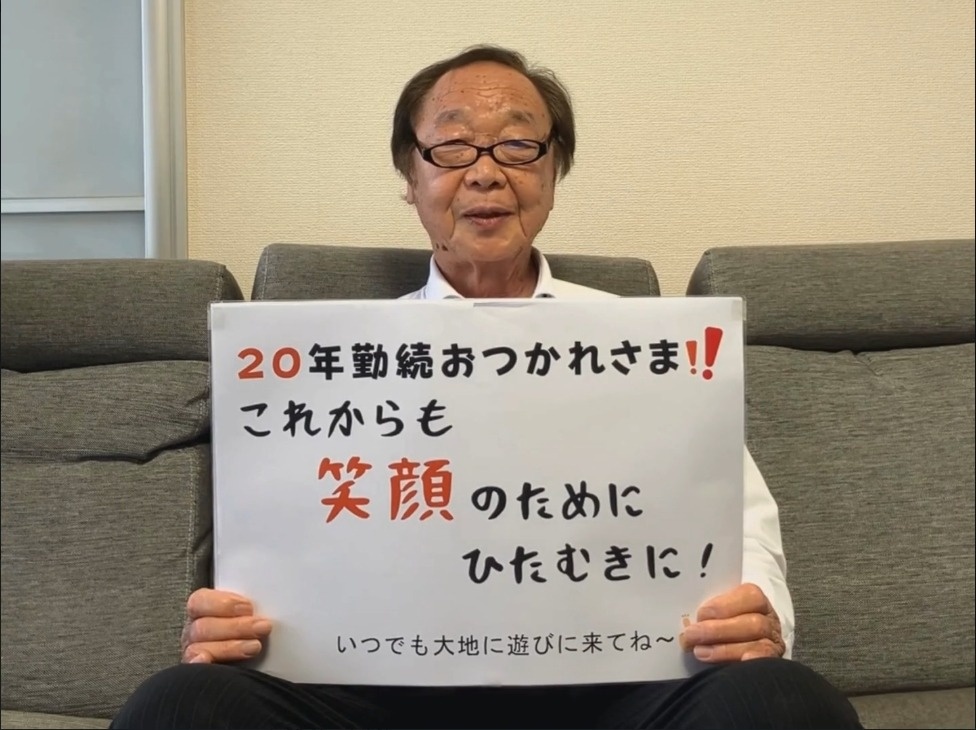 20年勤続おつかれさま!!
これからも
笑顔のために
ひたむきに!
いつでも大地に遊びに来てね~